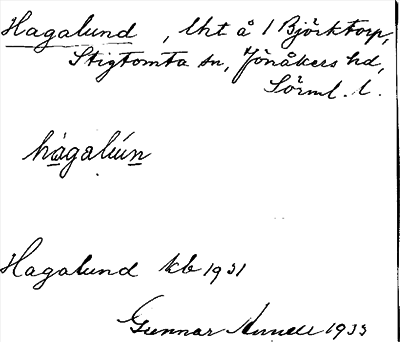 Hagalund, lht å 1 Björktorp,
Stigtomta sn, Jönåkers hd,
Sörml. l.
hagalun
Hagalund kb 1931
Gunnar 1933